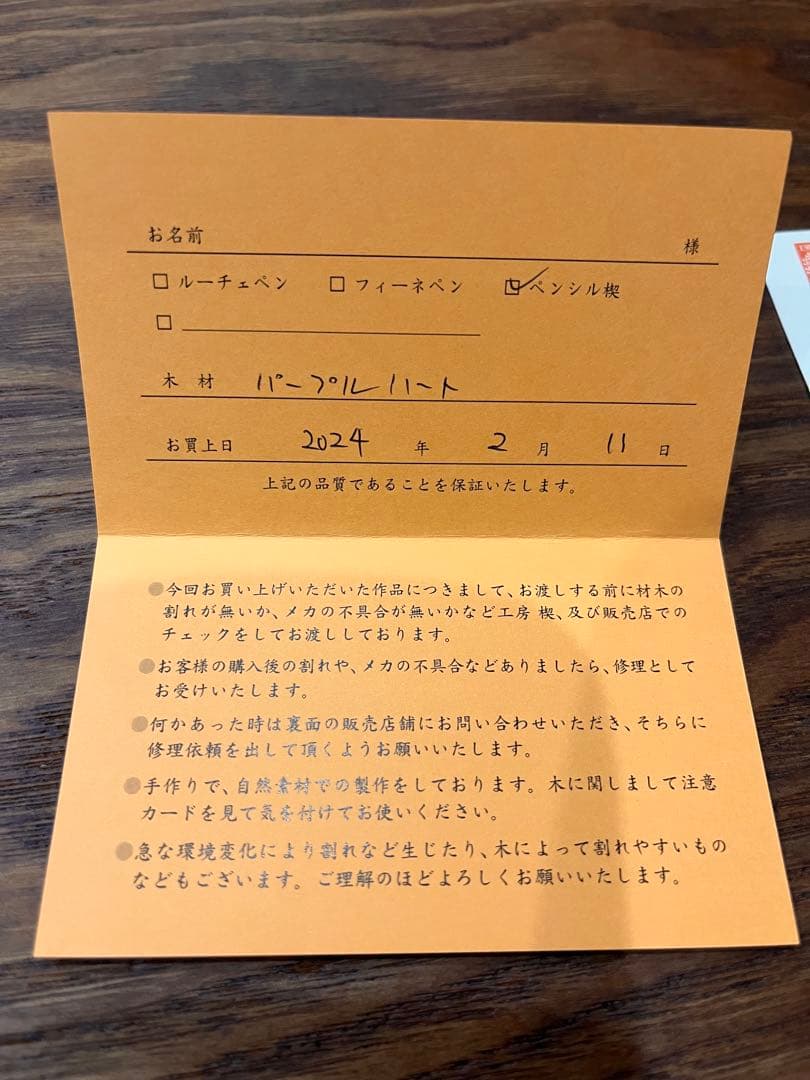 お名前 様
□ ルーチェペン □ フィーネペン ☑ ペンシル楔
□
木 材 パープルハート
お買上日 2024 年 2 月 11 日
上記の品質であることを保証いたします。
●今回お買い上げいただいた作品につきまして、お渡しする前に材木の
割れが無いか、メカの不具合が無いかなど工房 楔、及び販売店での
チェックをしてお渡ししております。
●お客様の購入後の割れや、メカの不具合などありましたら、修理として
お受けいたします。
●何かあった時は裏面の販売店舗にお問い合わせいただき、そちらに
修理依頼を出して頂くようお願いいたします。
●手作りで、自然素材での製作をしております。木に関しまして注意
カードを見て気を付けてお使いください。
●急な環境変化により割れなど生じたり、木によって割れやすいもの
などもございます。ご理解のほどよろしくお願いいたします。